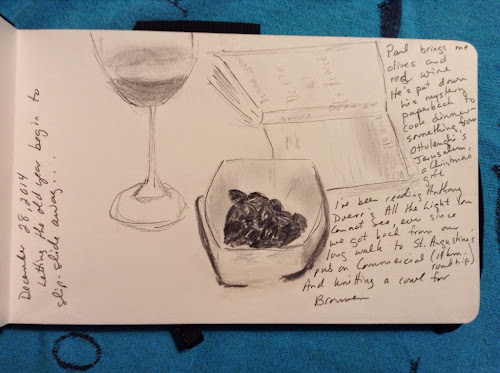 December 28, 2014
Letting the old year begin to
slip-slide away....
Paul brings me
olives and
red wine
He's put down
his mystery
paperback to
cook dinner-
something from
Ottolenghi's
Jerusalem,
a Christmas
gift
I've been reading Anthony
Doerr's All the Light You
Cannot See, ever since
we got back from our
long walk to St. Augustine's
pub on Commercial (14km.
roundtrip)
And knitting a cowl for
Bronwen